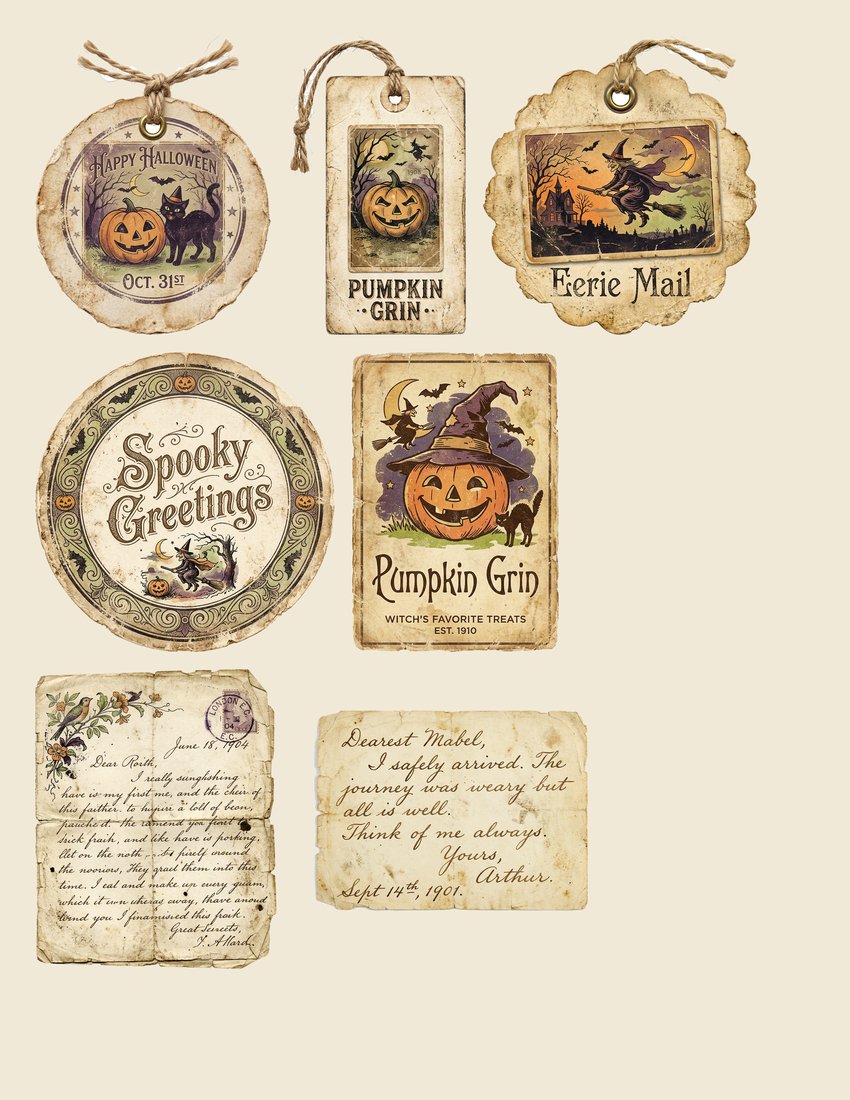 HAPPY HALLOWEEN
OCT. 31ST
PUMPKIN
GRIN
Eerie Mail
Spooky
Greetings
Pumpkin Grin
WITCH'S FAVORITE TREATS
EST. 1910
LONDON E.C.
04
E.C.
June 18, 1904
Dear Roith,
I really sunghshing
have is my first me, and the cheir of
this faither. to hupire a loll of beon,
pauche it. the ramend you
srick fraih, and like have is porking,
llet on the noth So furely around
the nooviors, They grail them into this
time. I eat and make up every guam,
which it own wheras away, thave anoud
tend you I finamised this froik.
Great Sureets,
Dearest Mabel,
I safely arrived. The
journey was weary but
all is well.
Think of me always.
Yours,
Arthur.
Sept 14th, 1901.